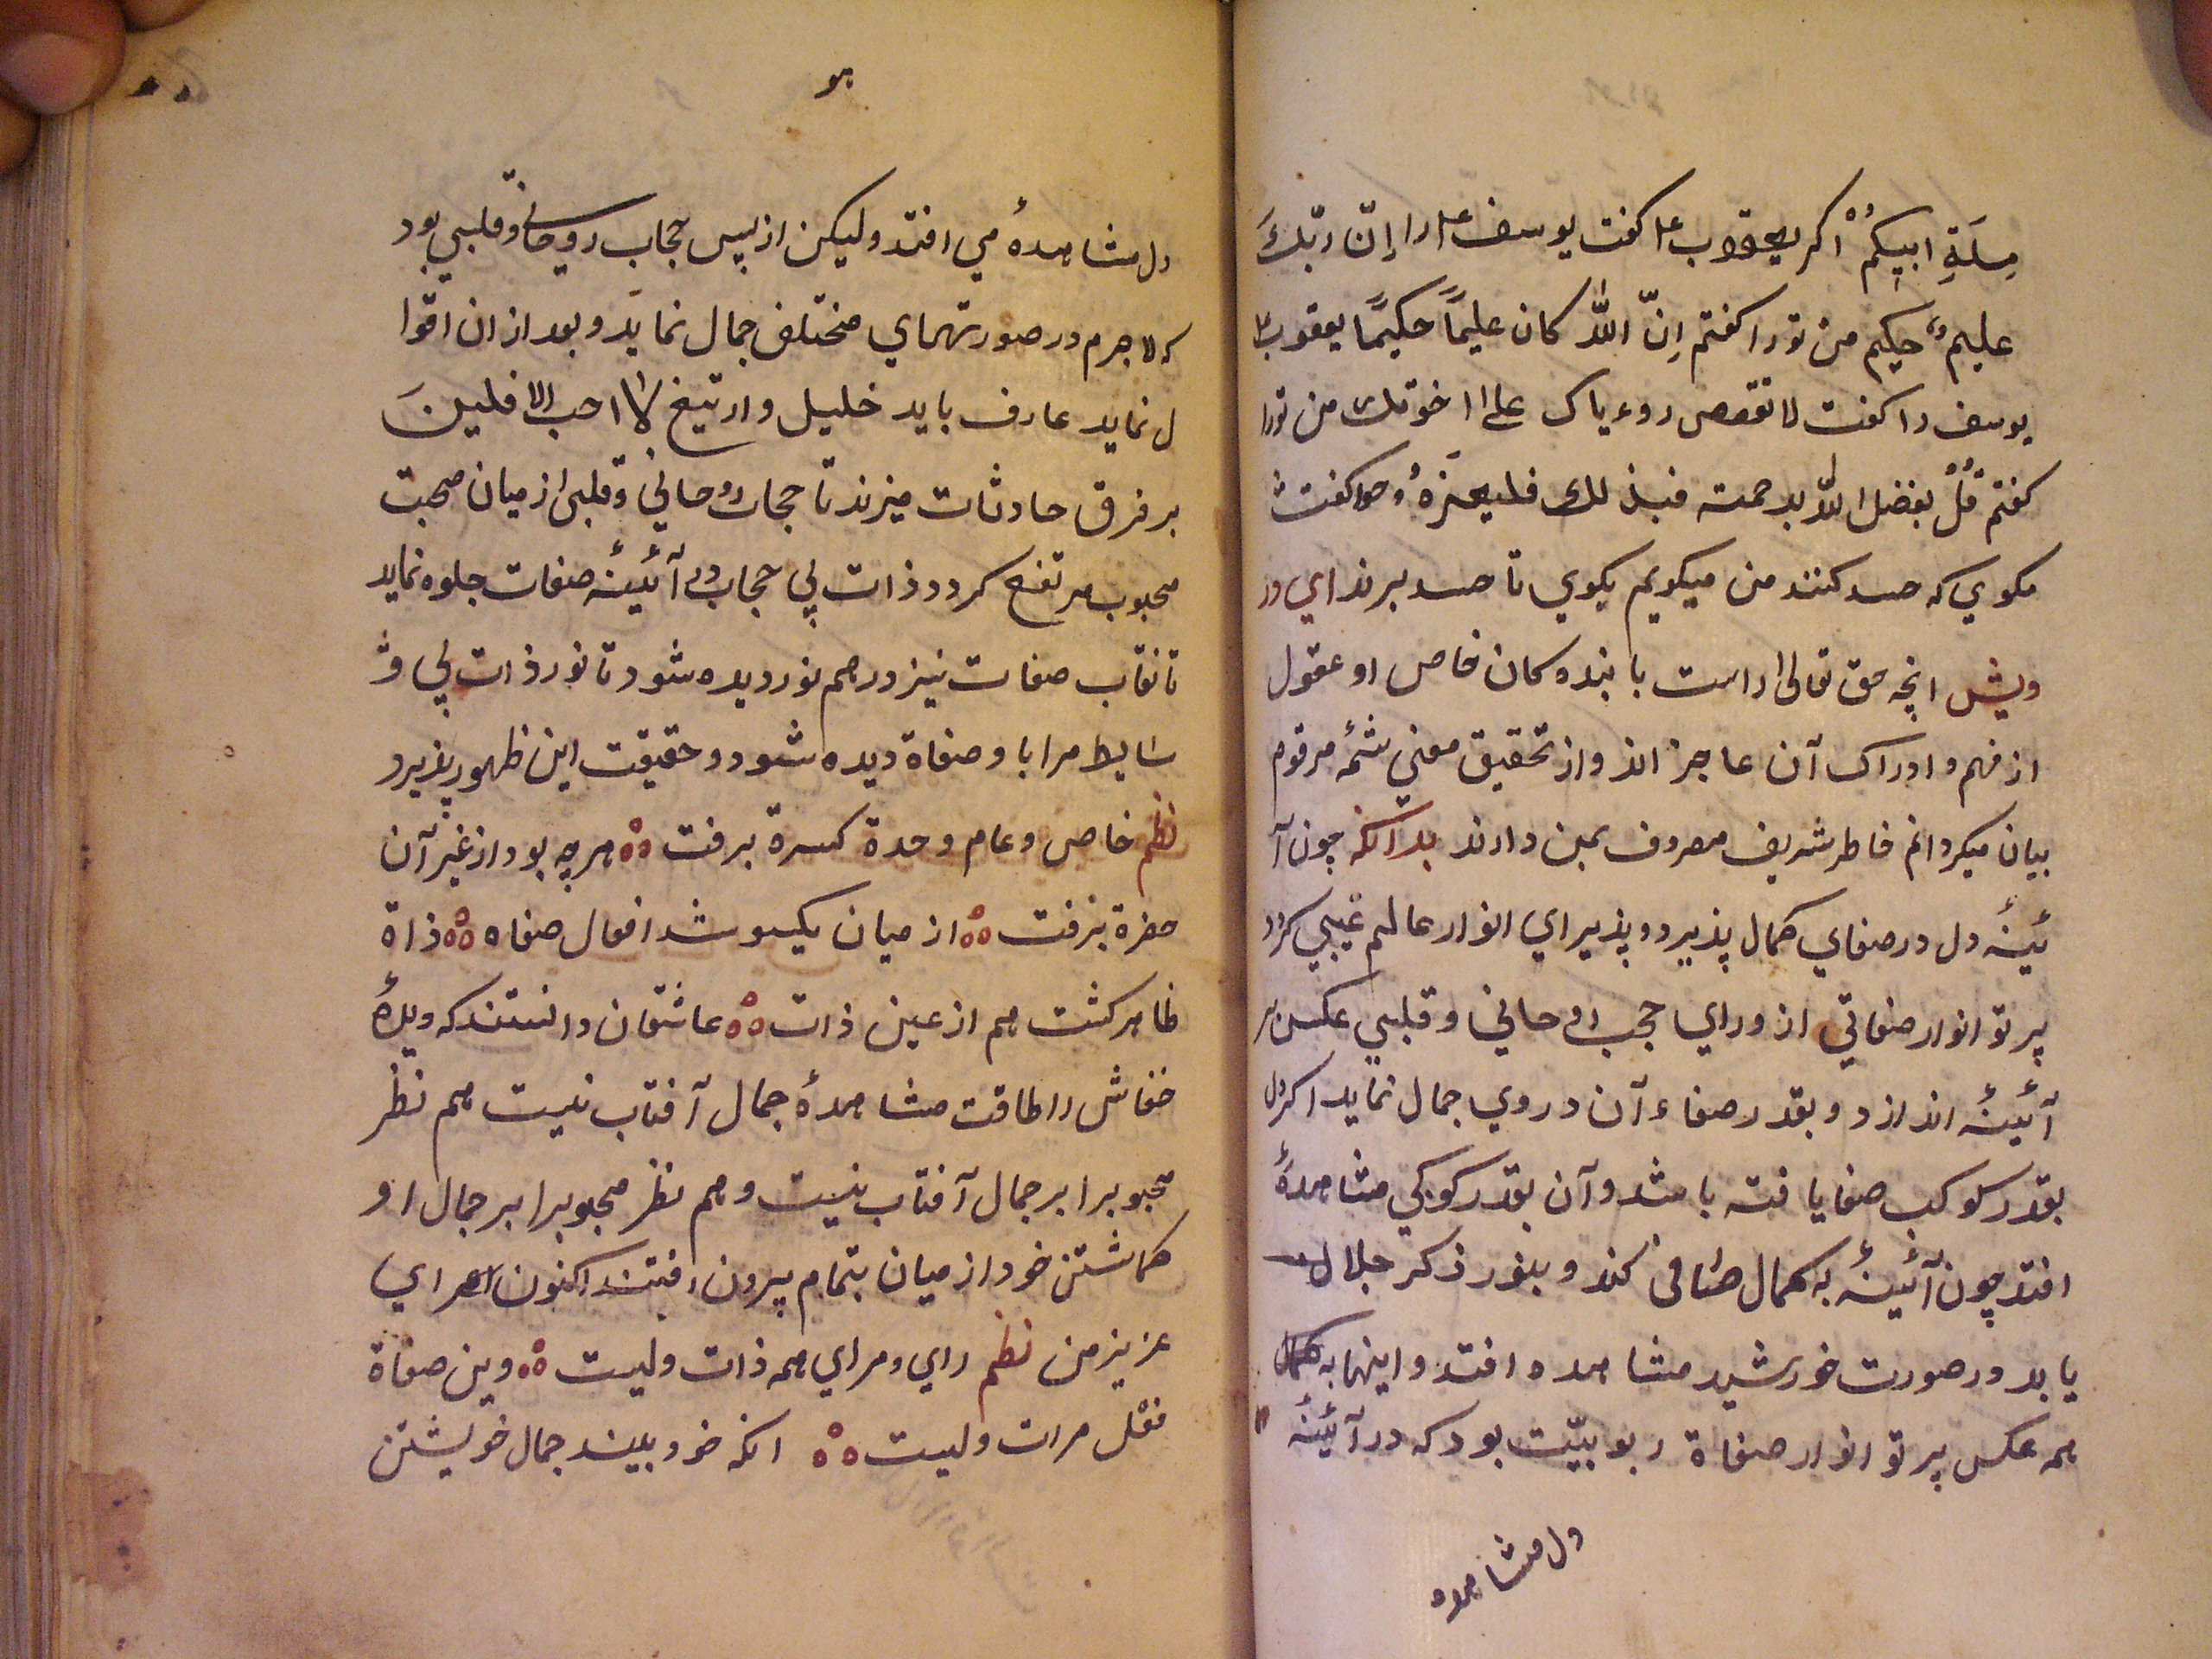 مِلَةِ ابِیکُمْ اکر یعقوب ع م کفت یوسف ع م را اِنّ ربّکَ
علیم حکیم من ترا کفتم اِنّ اللّٰه کان علیماً حکیمًا یعقوب
یوسف را کفت لا تقصص روءیاک علی اخوتک من ترا
کفتم قُلْ بفضل اللّٰه برحمته فبذلک فلیفرَحُوا کفت
مکوي که حسد کنند من میکویم بکوي تا حسد برند اي در
ویش انچه حق تعالیٰ راست با بندوکان خاص او عقول
از فهم و ادراک آن عاجز اند و از تحقیق معني شمۀ مرقوم
بیان میکردانم خاطر شریف مصروف بمن دارند بدآنکه چون آ
ئینۀ دل در صفاي کمال پذیرد و پذیراي انوار عالم غیبي کردد
پرتو انوار صفاتي از وراي حجب روحاني و قلبي عکس بر
آئینۀ اندازد و بقدر صفاء آن در وي جمال نماید اکر دل
بقدر کوکب صفا یافته باشد و آن بقدر کوکبي مشاهدۀ
افتد چون آئینۀ به کمال صافی کند و بنور ذکر جلال
یابد در صورت خورشید مشاهده افتد و اینها به کمال
همه عکس پرتو انوار صفاة ربوبیّت بود که در آئینۀ
دل مشاهده
هو
دل مشاهدۀ مي افتد ولیکن از پس حجاب روحاني و قلبي بود
که لاجرم در صورتهماي مختلف جمال نماید و بعد از ان اقوا
ل نماید عارف باید خلیل وار تیغ لا احب الافلینَ
بر فرق حادثات میزند تا حجاب روحاني و قلبی از میان صحبت
محبوب مرتفع کردد ذات بي حجاب در آئینۀ صفات جلوه نماید
تا نقاب صفات نیز در هم نوردیده شود تا نور ذات بي و
سایط مرابا و صفاة دیده شود و حقیقت این ظهور پذیرد
نظم خاص و عام وحدة کسرة برفت هرچه بود از غیر آن
حضرة برفت از میان یکسو شد افعال صفاه ذاة
ظاهر کشت هم از عین ذات عاشقان دانستند که دیدۀ
خفاش را طاقت مشاهدۀ جمال آفتاب نیست هم نظر
محبوبرا بر جمال آفتاب نیست و هم نظر محبوبرا بر جمال او
کماشتن خود از میان بتمام بیرون افتند اکنون اي
عزیز من نظم راي و مراي همه ذات ولیست وین صفاة
فعل مرات ولیست انکه خود بیند جمال خویشتن